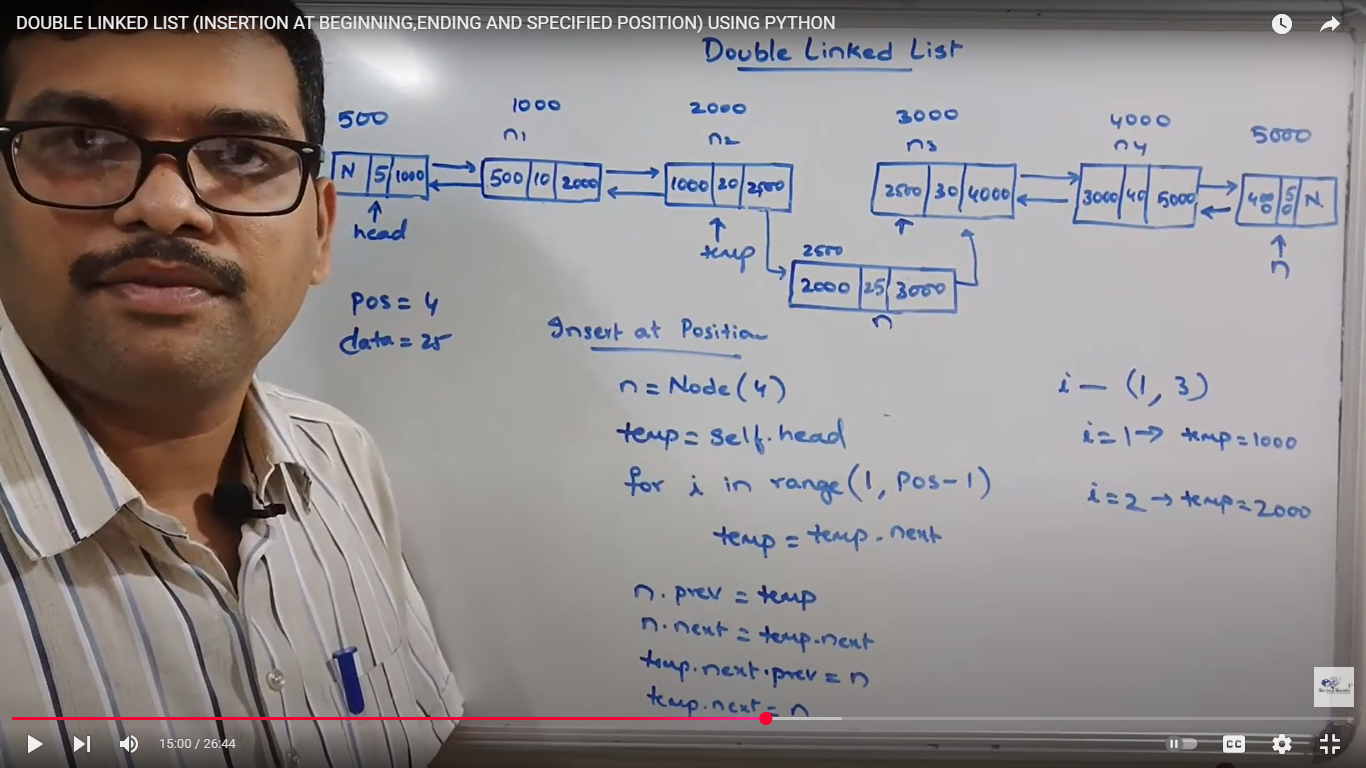 DOUBLE LINKED LIST (INSERTION AT BEGINNING,ENDING AND SPECIFIED POSITION) USING PYTHON
Double Linked List
500 1000 2000 3000 4000 5000
n1 n2 n3 n4
N 5 1000 500 10 2000 1000 20 2500 2500 30 4000 3000 40 5000 400 50 N
head temp n
2500
2000 25 3000
n
Pos = 4
data = 25
Insert at Position
n = Node(4)
temp = self.head
for i in range(1, Pos-1)
temp = temp.next
n.prev = temp
n.next = temp.next
temp.next.prev = n
temp.next = n
i — (1, 3)
i = 1 → temp = 1000
i = 2 → temp = 2000
15:00 / 26:44
CC